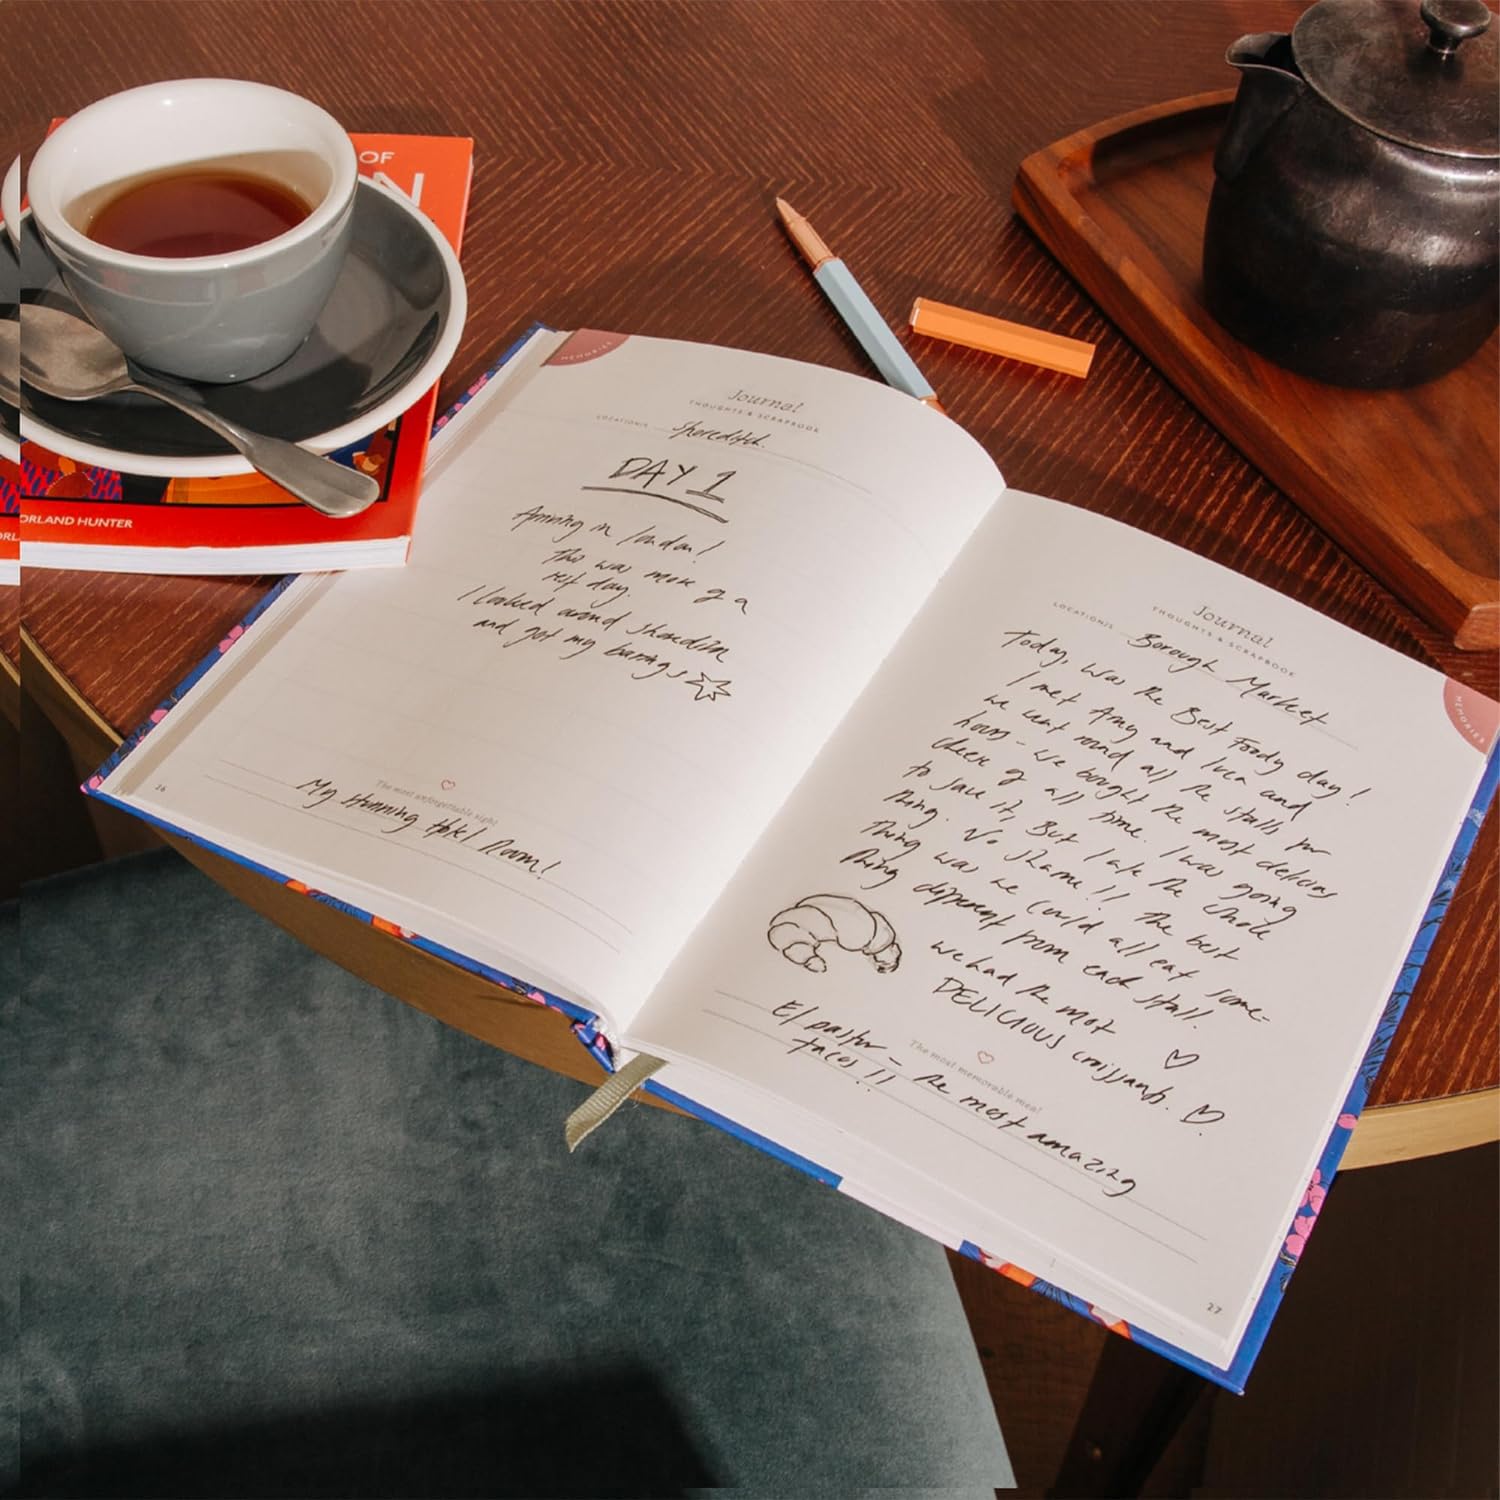 OF
N
ORLAND HUNTER
ORL
MEMORIES
Journal
THOUGHTS & SCRAPBOOK
LOCATION/S Shoreditch.
DAY 1
Arriving in london!
This was more of a
rest day.
I looked around shoreditch
and got my barings
The most unforgettable sight
My stunning Hotel Room!
26
MEMORIES
Journal
THOUGHTS & SCRAPBOOK
LOCATION/S Borough Market
Today, was the Best Foody day!
I met Amy and Luca and
we went round all the stalls for
hours - we bought the most delicious
cheese of all time. I was going
to save it, But I ate the whole
thing. No shame!! The best
thing was we could all eat some-
thing different from each stall.
we had the most
DELICIOUS croissants.
The most memorable meal
El pastor - the most amazing
tacos!!
27